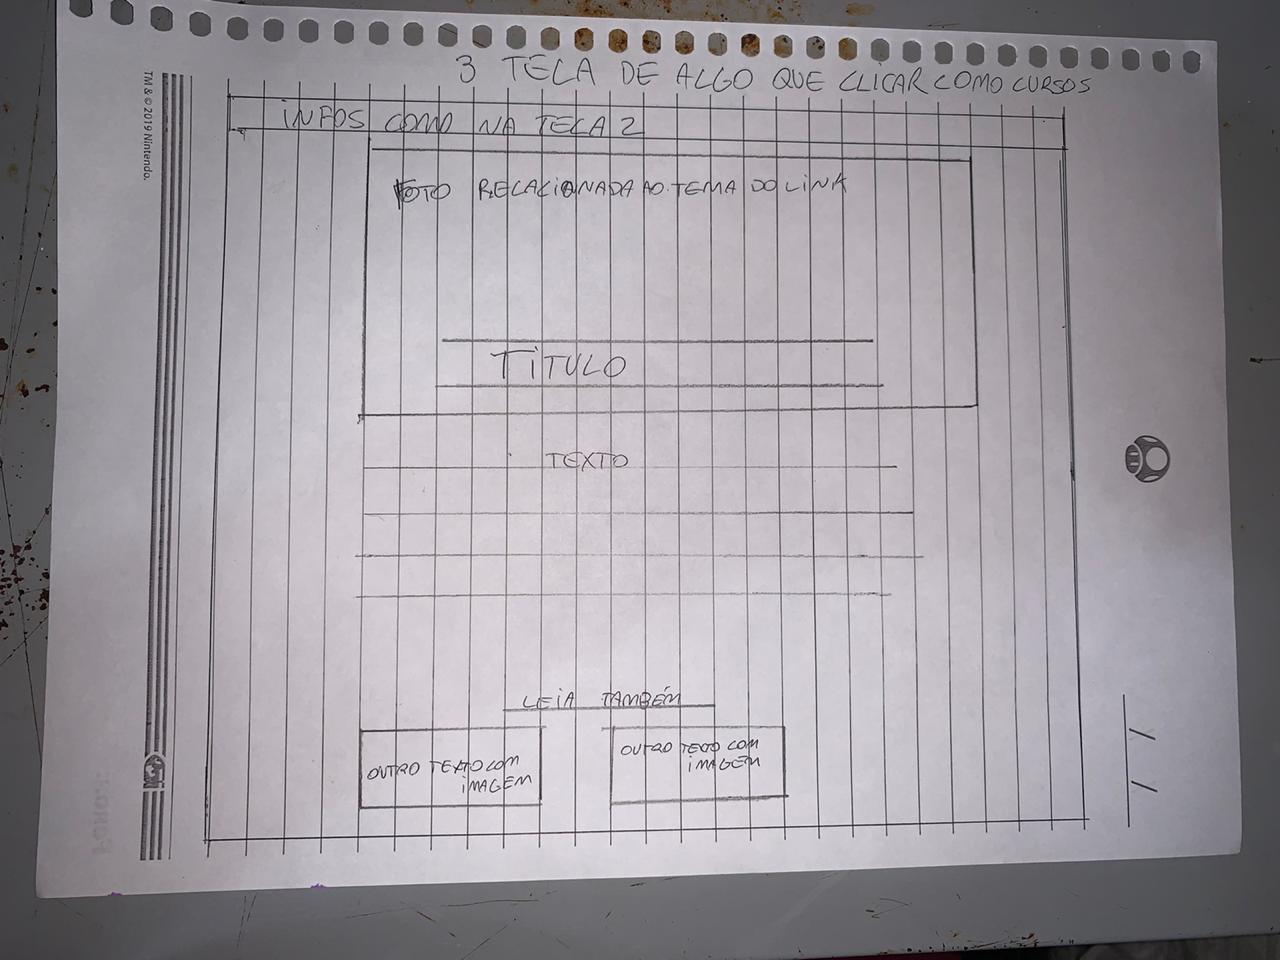 3 TELA DE ALGO QUE CLICAR COMO CURSOS
INFOS COMO NA TELA 2
FOTO RELACIONADA AO TEMA DO LINA
TÍTULO
TEXTO
LEIA TAMBÉM
OUTRO TEXTO COM
IMAGEM
OUTRO TEXTO COM
IMAGEM
TM & © 2019 Nintendo.